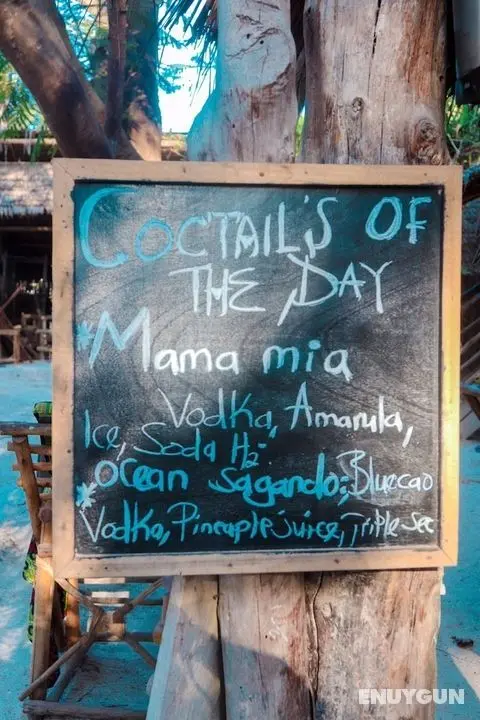 COCTAIL'S OF
THE DAY
*Mama mia
Vodka, Amarula,
Ice, Soda H2
*Ocean Sagando:, Bluecao
Vodka, Pineaple juice, Triple sec
ENUYGUN